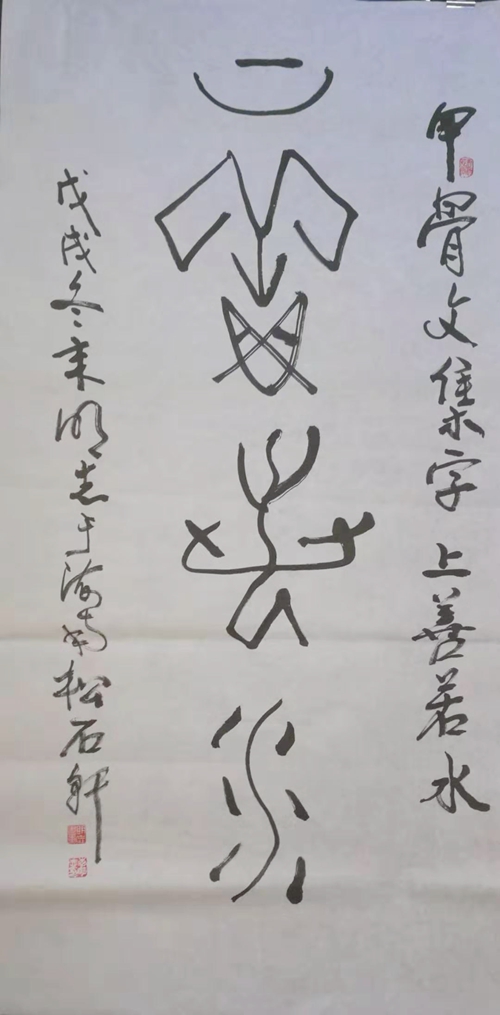 甲骨文集字 上善若水
上善若水
戊戌冬末明志于南松石轩